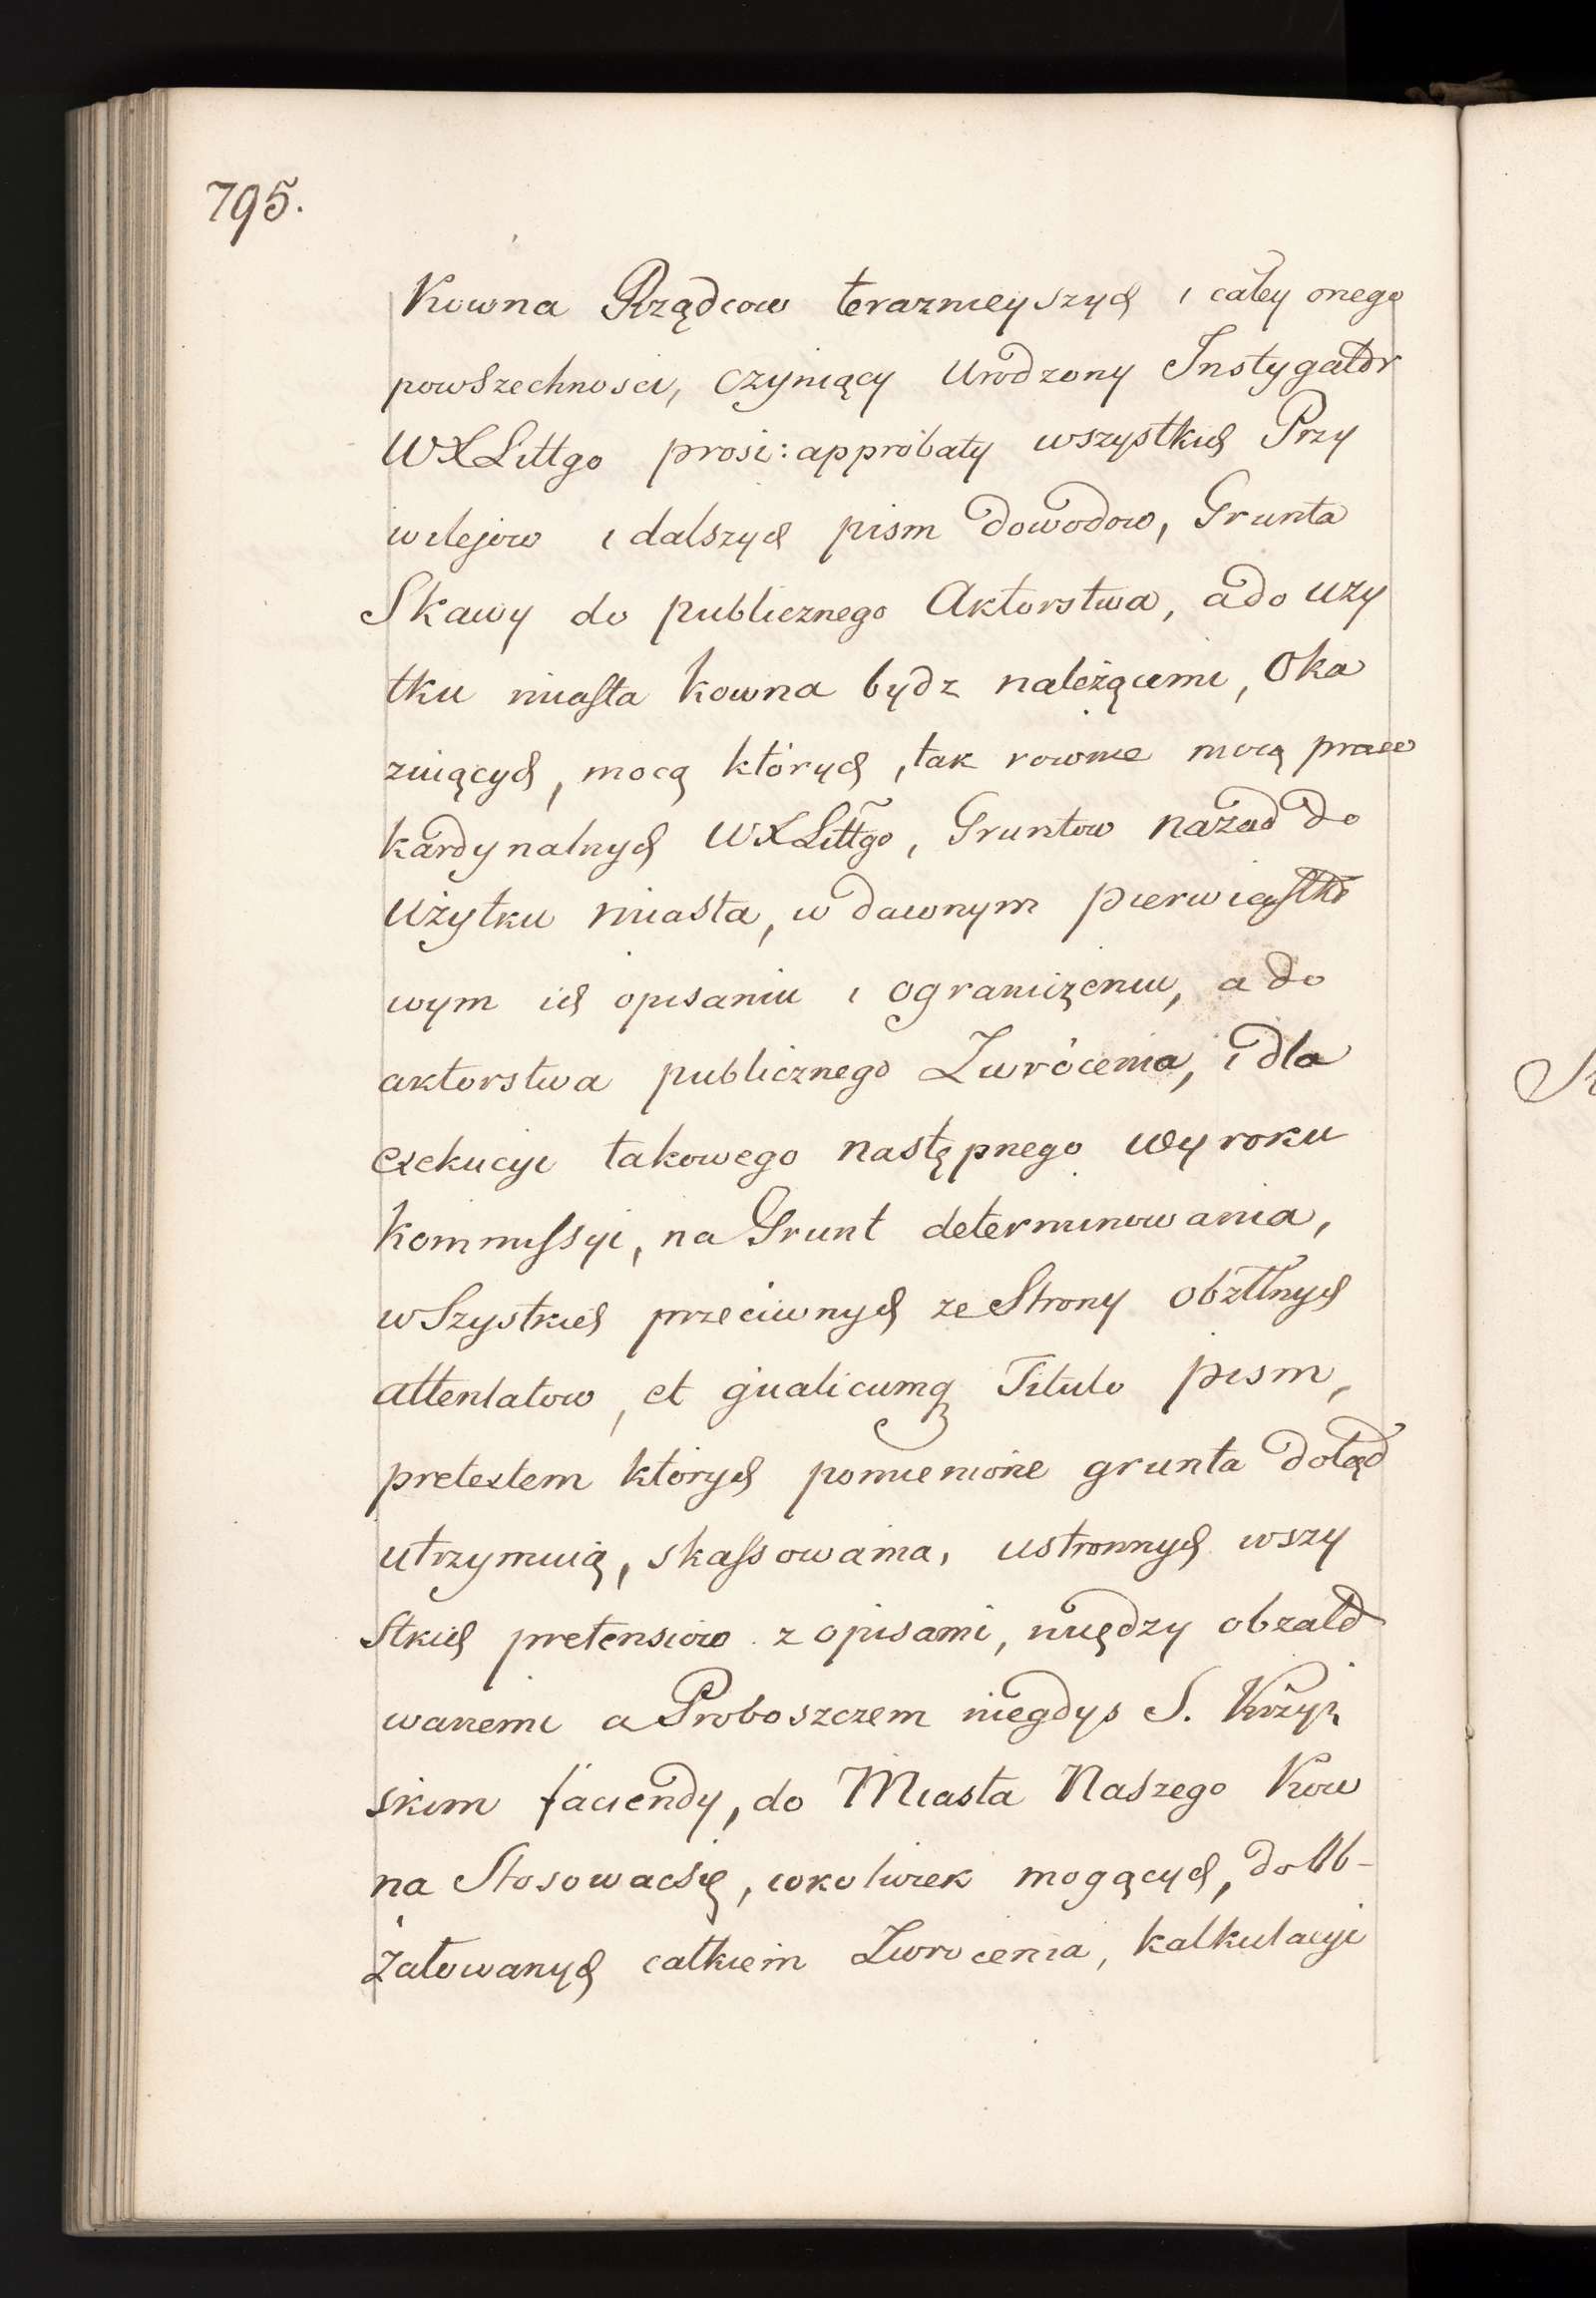 795.
Kowna Rządcow teraznieyszych i całey onego
powszechnosci, czyniący Urodzony Instygator
WXLittgo prosi: approbaty wszystkich Przy
wilejow i dalszych pism dowodow, Grunta
Skawy do publicznego Aktorstwa, a do uzy
tku miasta Kowna bydz należącemi, Oka
zuiących, mocą których, tak rownie mocą praw
kardynalnych WXLittgo, Gruntow nazad do
Użytku miasta, w dawnym pierwiastko
wym ich opisaniu i ograniczeniu, a do
aktorstwa publicznego Zwrócenia, i dla
exekucyi takowego następnego wyroku
Kommissyi, na Grunt determinowania,
wszystkich przeciwnych ze Strony obżłłnych
attentatow, et qualicumq Titulo pism,
pretextem których pomienione grunta dotąd
utrzymuią, skassowania, ustronnych wszy
stkich pretensiow z opisami, między obzało
wanemi a Proboszczem niegdys S. Krzyż
skim faciendy, do Miasta Naszego Kow
na Stosowacsię, cokolwiek mogących, do Ob-
żałowanych całkiem Zwrocenia, kalkulacyi